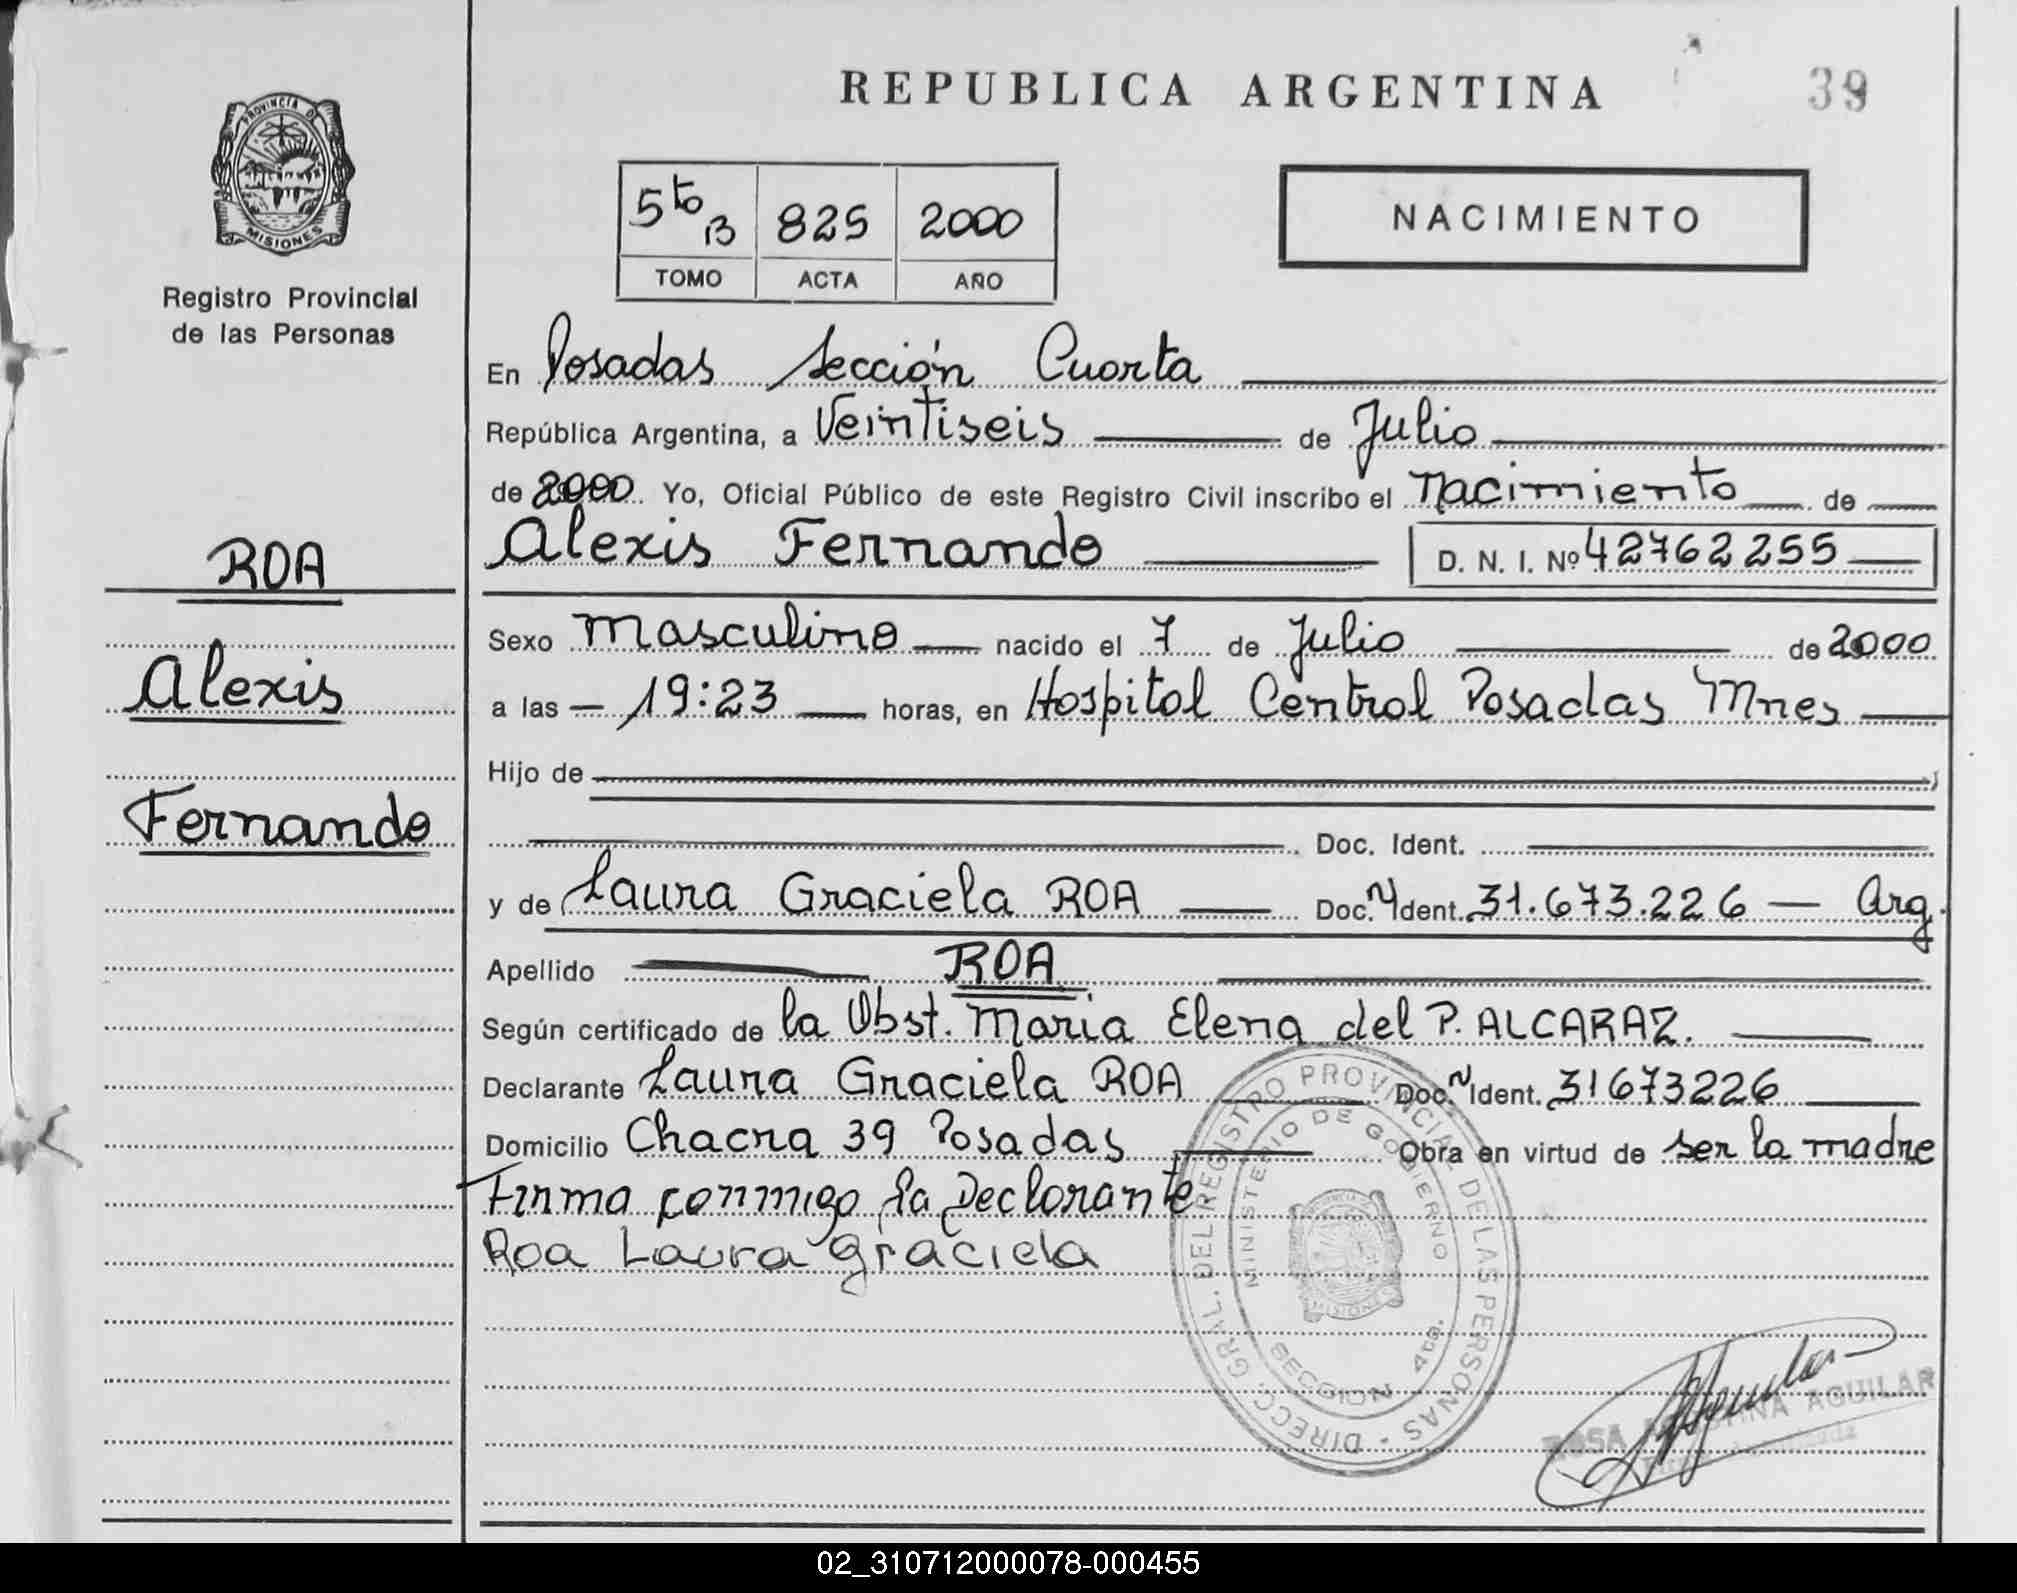 REPUBLICA ARGENTINA
39
PROVINCIA DE
MISIONES
Registro Provincial
de las Personas
5to B 825 2000
TOMO ACTA AÑO
NACIMIENTO
En Posadas Sección Cuarta
República Argentina, a Veintiseis de Julio
de 2000 Yo, Oficial Público de este Registro Civil inscribo el Nacimiento de
ROA
Alexis Fernando D. N. I. Nº 42762255
Sexo Masculino nacido el 7 de Julio de 2000
Alexis
a las 19:23 horas, en Hospital Central Posadas Mnes
Hijo de
Fernando
Doc. Ident.
y de Laura Graciela ROA Doc. N Ident. 31.673.226 Arg.
Apellido ROA
Según certificado de la Obst. Maria Elena del P. ALCARAZ.
Declarante Laura Graciela ROA Doc. N Ident. 31673226
Domicilio Chacra 39 Posadas Obra en virtud de ser la madre
Firma conmigo la Declarante
Roa Laura graciela
DIRECC. GRAL. DEL REGISTRO PROVINCIAL DE LAS PERSONAS
MINISTERIO DE GOBIERNO
MISIONES
SECCION 4ta.
ROSA AGUILAR
02_310712000078-000455